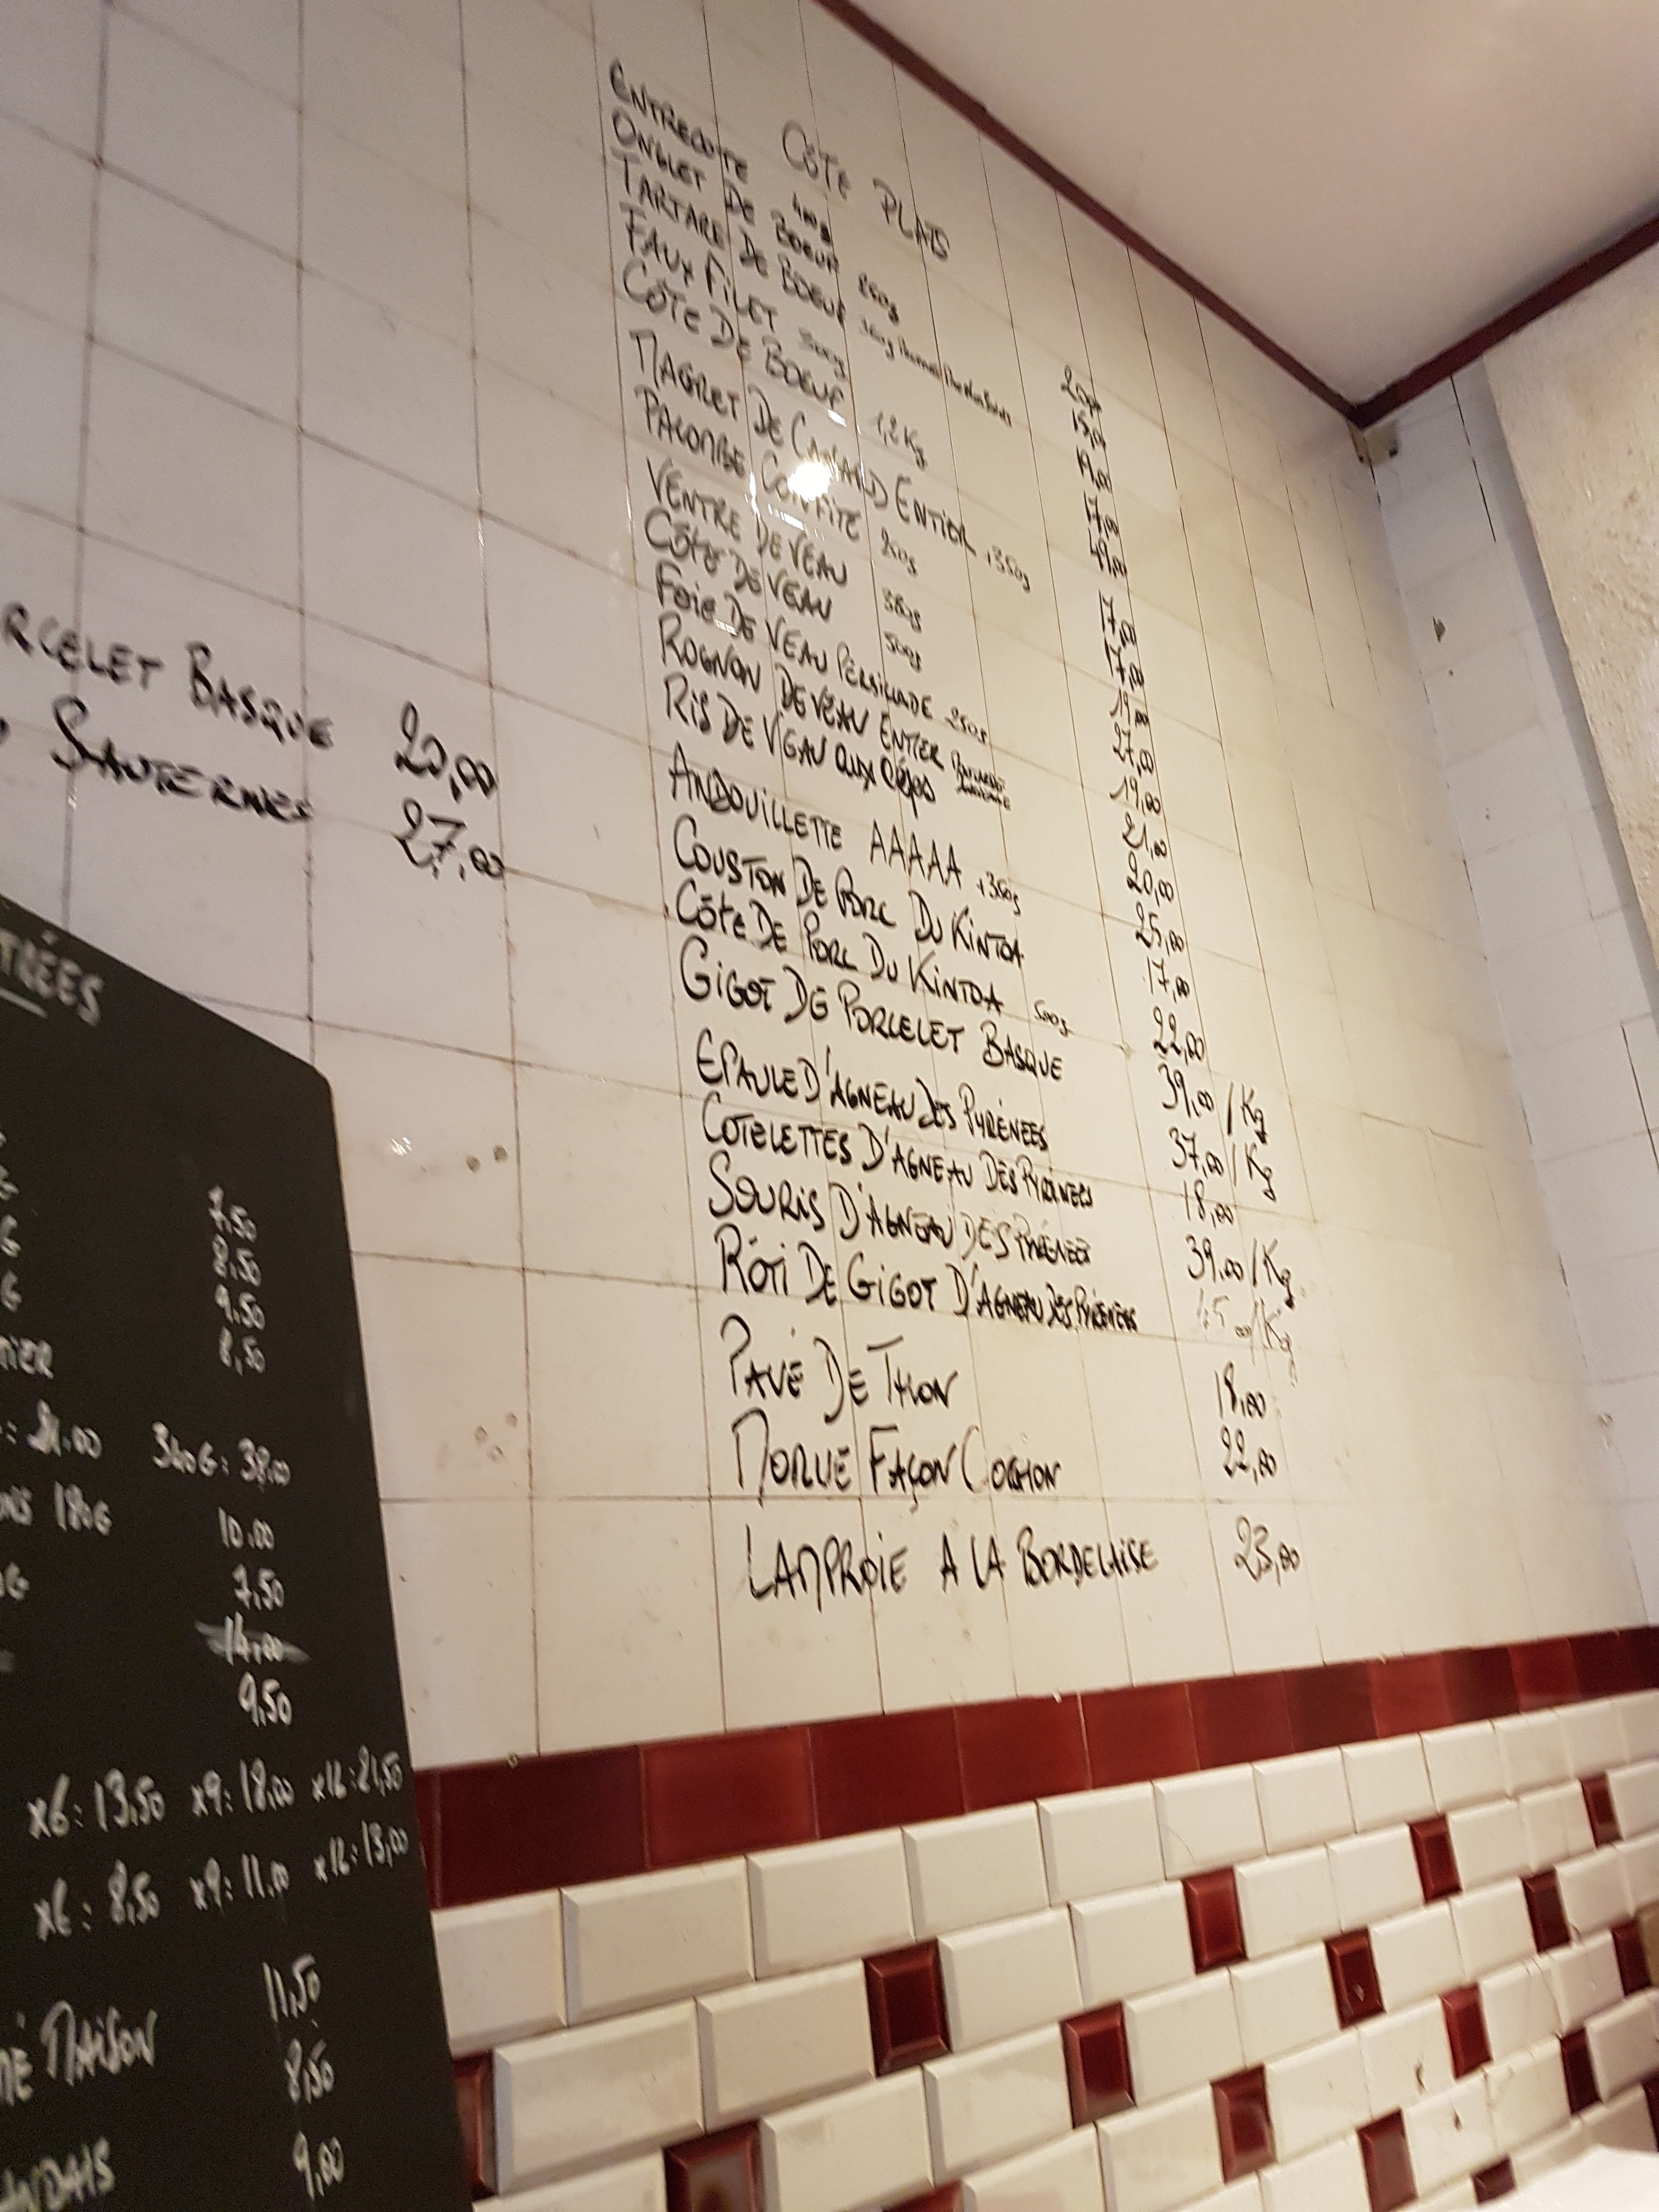 CÔTÉ PLATS
ENTRECOTE 400g 20,00
ONGLET DE BOEUF 250g 15,00
TARTARE DE BOEUF 300g 17,00
FAUX FILET 300g 17,00
CÔTE DE BOEUF 1,2 Kg 49,00
MAGRET DE CANARD ENTIER +350g 17,00
PALOMBE CONFITE 250g 17,00
VENTRE DE VEAU 380g 19,00
CÔTE DE VEAU 500g 27,00
FOIE DE VEAU PERSILLADE 250g 19,00
ROGNON DE VEAU ENTIER 21,00
RIS DE VEAU AUX CÈPES 20,00
ANDOUILLETTE AAAAA +350g 25,00
COUSTON DE PORC DU KINTOA 17,00
CÔTE DE PORC DU KINTOA 500g 22,00
GIGOT DE PORCELET BASQUE 39,00/Kg
EPAULE D'AGNEAU DES PYRÉNÉES 37,00/Kg
COTELETTES D'AGNEAU DES PYRÉNÉES 18,00
SOURIS D'AGNEAU DES PYRÉNÉES 39,00/Kg
RÔTI DE GIGOT D'AGNEAU DES PYRÉNÉES 45,00/Kg
PAVÉ DE THON 18,00
MORUE FAÇON COCHON 22,00
LAMPROIE A LA BORDELAISE 23,00
RCELET BASQUE 20,00
SAUTERNES 27,00
TRÉES
7,50
G 8,50
G 9,50
MIER 8,50
: 21.00 340G: 38,00
ONS 180G 10.00
G 7,50
14,00
9,50
x6: 13,50 x9: 18,00 x12: 21,50
x6: 8,50 x9: 11,00 x12: 13,00
11,50
MAISON 8,50
NDAIS 9,00